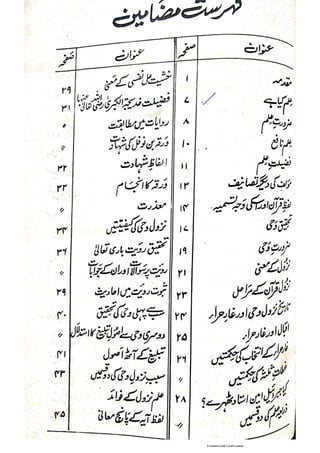 فہرست مضامین
عنوان صفحہ
مقدمہ ۱
علم کیا ہے ۷
ضرورت علم ۸
علم نافع ۱۰
فضیلت علم ۱۱
مؤلف کی دیگر تصانیف ۱۳
لفظ قرآن اور اسکی وجہ تسمیہ ۱۴
تحقیق وحی ۱۷
ضرورت وحی ۱۹
نزول کے معنی ۲۱
نزول قرآن کے مراحل ۲۳
تاریخ نزول وحی اور غار حراء ۲۴
اقبال اور غار حراء ۲۵
غار حراء کے انتخاب کی حکمتیں ۲۶
کی حکمتیں 〃
کیا جبرائیل امین استاد ٹھہرے؟ ۲۸
علم کی دو قسمیں 〃
عنوان صفحہ
خشیت علی نفسی کے معنی ۲۹
فضیلت خدیجۃ الکبریٰ رضی اللہ تعالیٰ عنہا ۳۱
روایات میں مطابقت
ورقہ بن نوفل کی شہادت
الفاظ شہادت ۳۲
ورقہ کا انجام ۳۳
معذرت 〃
نزول وحی کی کیفیتیں ۳۴
تحقیق رویت باری تعالیٰ ۳۶
رویت پر سوالات اور ان کے جوابات
ثبوت رویت میں احادیث ۳۹
پہلی وحی کی تحقیق ۴۰
دوسری وحی سے اصول تبلیغ کا استدلال 〃
تبلیغ کے آٹھ اصول ۴۱
سبب نزول وحی کی دو قسمیں ۴۳
علم نزول کے فوائد 〃
لفظ آیہ کے پانچ معانی ۴۵